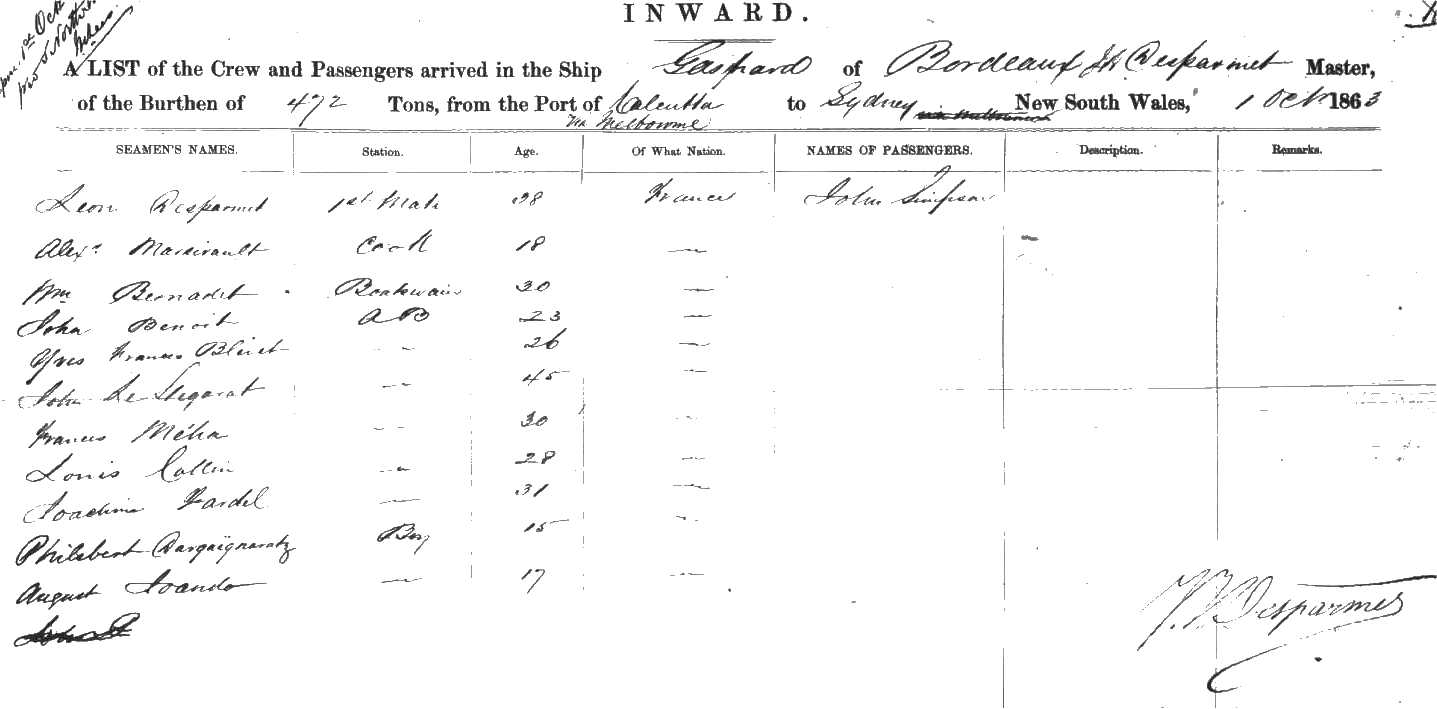 1st Oct
INWARD.
A LIST of the Crew and Passengers arrived in the Ship Gaspard of Bordeaux Desparmet Master,
of the Burthen of 472 Tons, from the Port of Calcutta to Sydney New South Wales, 1 Oct 1863
via Melbourne
SEAMEN'S NAMES. Station. Age. Of What Nation. NAMES OF PASSENGERS. Description. Remarks.
Leon Desparmet 1st Mate 38 France John Simpson
Alexr Cook 18 —
Wm Bernadet Boatswain 30 —
John Benoit AB 23 —
Yves Frances — 26 —
John Le — 45 —
Frances Méha — 30 —
Louis Collin — 28 —
Joachim Fardel — 31 —
Philebert Boy 15 —
August — 17 —
Desparmet